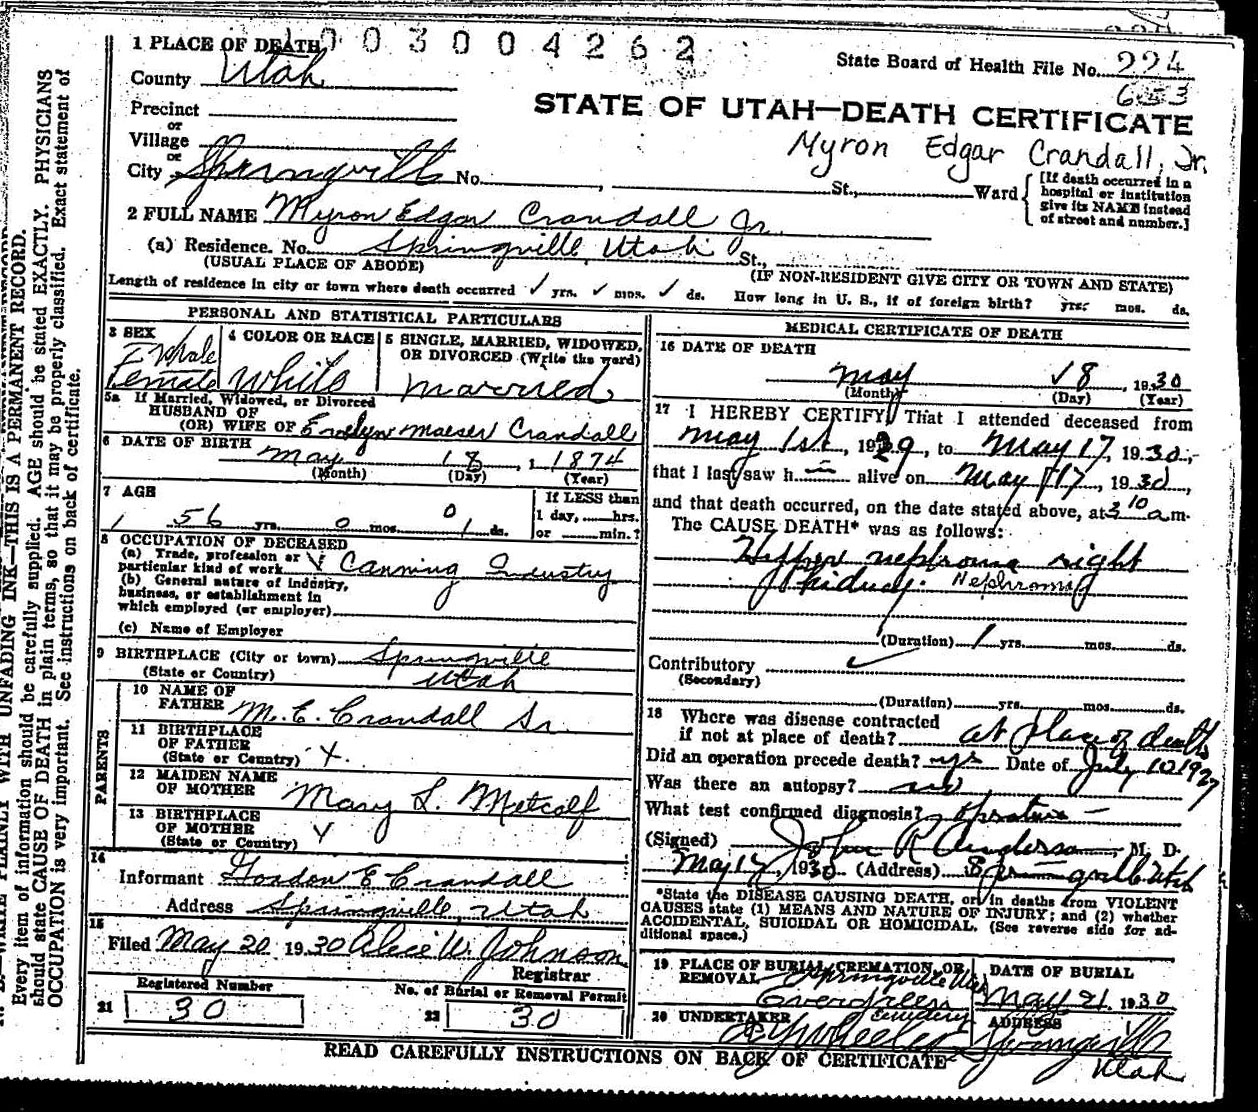 1 PLACE OF DEATH 1003004262
State Board of Health File No. 224
653
County Utah
STATE OF UTAH—DEATH CERTIFICATE
Precinct
or
Village
Myron Edgar Crandall, Jr.
or
City Springville No. , St., Ward
[If death occurred in a
hospital or institution
give its NAME instead
of street and number.]
2 FULL NAME Myron Edgar Crandall Jr.
(a) Residence. No. Springville, Utah St.,
(USUAL PLACE OF ABODE) (IF NON-RESIDENT GIVE CITY OR TOWN AND STATE)
Length of residence in city or town where death occurred ✓ yrs. ✓ mos. ✓ ds. How long in U. S., if of foreign birth? yrs. mos. ds.
PERSONAL AND STATISTICAL PARTICULARS
3 SEX
Male
Female
4 COLOR OR RACE
White
5 SINGLE, MARRIED, WIDOWED,
OR DIVORCED (Write the word)
Married
5a If Married, Widowed, or Divorced
HUSBAND OF
(OR) WIFE OF Evelyn Maeser Crandall
6 DATE OF BIRTH
May 18, 1874
(Month) (Day) (Year)
7 AGE
56 yrs. 0 mos. 0 ds.
If LESS than
1 day, hrs.
or min.?
8 OCCUPATION OF DECEASED
(a) Trade, profession or
particular kind of work Canning Industry
(b) General nature of industry,
business, or establishment in
which employed (or employer)
(c) Name of Employer
9 BIRTHPLACE (City or town) Springville
(State or Country) Utah
PARENTS
10 NAME OF
FATHER M. E. Crandall Sr.
11 BIRTHPLACE
OF FATHER
(State or Country) x
12 MAIDEN NAME
OF MOTHER Mary L. Metcalf
13 BIRTHPLACE
OF MOTHER
(State or Country) x
14
Informant Gordon E Crandall
Address Springville, Utah
15
Filed May 20 1930 Alice W. Johnson
Registrar
Registered Number
21 30
No. of Burial or Removal Permit
22 30
MEDICAL CERTIFICATE OF DEATH
16 DATE OF DEATH
May 18, 1930
(Month) (Day) (Year)
17 I HEREBY CERTIFY, That I attended deceased from
May 1st, 1929, to May 17, 1930,
that I last saw h alive on May 17, 1930,
and that death occurred, on the date stated above, at 3 10 a m.
The CAUSE DEATH* was as follows:
Hyper nephroma right
kidney. Nephroma
(Duration) 1 yrs. mos. ds.
Contributory ✓
(Secondary)
(Duration) yrs. mos. ds.
18 Where was disease contracted
if not at place of death? at place of death
Did an operation precede death? yes Date of July 10 1927
Was there an autopsy? no
What test confirmed diagnosis? operation
(Signed) John R Anderson, M. D.
May 17, 1930 (Address) Springville Utah
*State the DISEASE CAUSING DEATH, or in deaths from VIOLENT
CAUSES state (1) MEANS AND NATURE OF INJURY; and (2) whether
ACCIDENTAL, SUICIDAL OR HOMICIDAL. (See reverse side for ad-
ditional space.)
19 PLACE OF BURIAL, CREMATION, OR
REMOVAL Springville Utah
Evergreen Cemetery
DATE OF BURIAL
May 21 1930
20 UNDERTAKER
Wheeler
ADDRESS
Springville
Utah
READ CAREFULLY INSTRUCTIONS ON BACK OF CERTIFICATE
WRITE PLAINLY WITH UNFADING INK—THIS IS A PERMANENT RECORD.
Every item of information should be carefully supplied. AGE should be stated EXACTLY. PHYSICIANS
should state CAUSE OF DEATH in plain terms, so that it may be properly classified. Exact statement of
OCCUPATION is very important. See instructions on back of certificate.